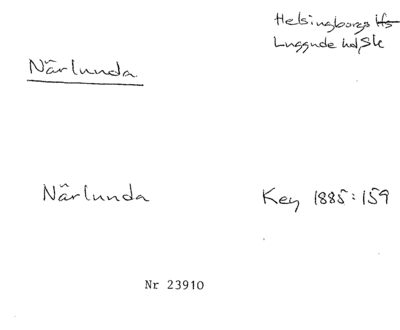 Helsingborgs lfs
Luggude hd, Sk
Närlunda
Närlunda Key 1885:159
Nr 23910